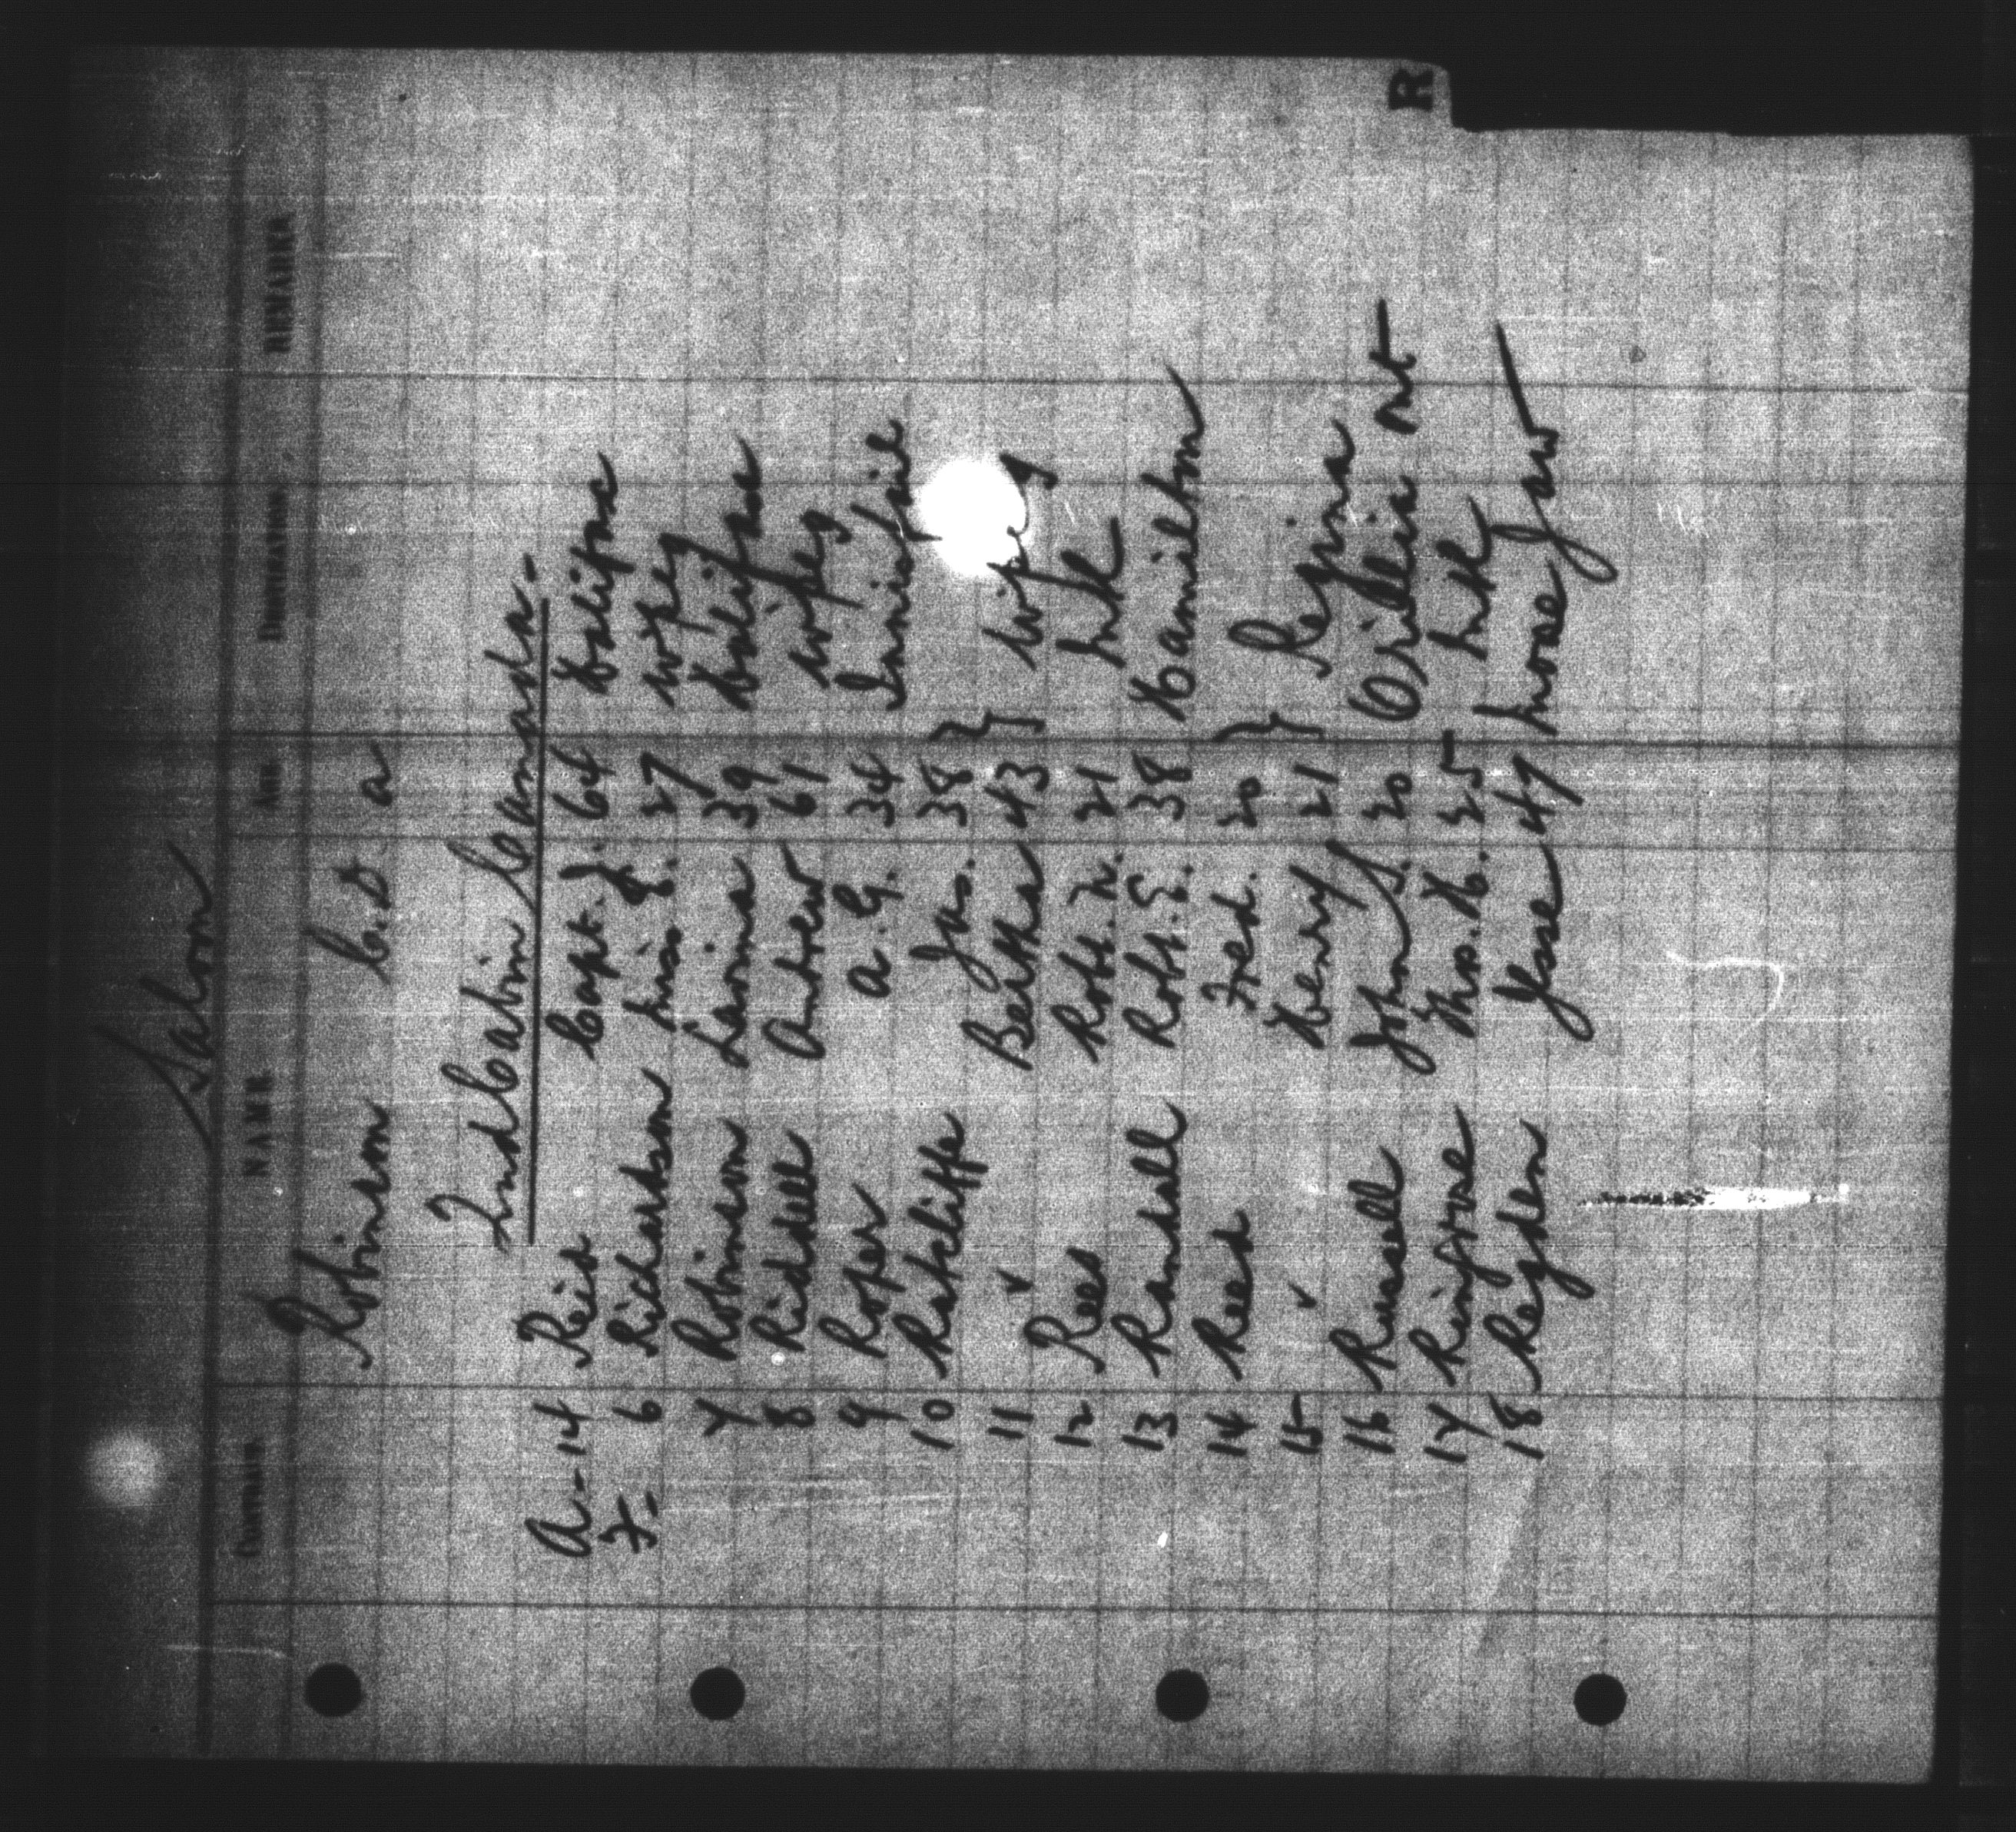 R
Saloon
CONTRACT NAME AGE DESTINATION REMARKS
Robinson C.D a
2nd Cabin Canada-
A-14 Reid Capt. J. 64 Halifax
F- 6 Richardson Miss E. 27 Wpeg
7 Robinson Lavina 39 Halifax
8 Riddell Andrew 61 Wpeg
9 Roper A.G. 34 Innisfail
10 Ratcliffe Jas. 38 }
11 " Bertha 43 } Wpeg
12 Rees Robt. N. 21 Mtl
13 Randall Robt. E. 38 Hamilton
14 Reed Fred. 20 }
15 " Henry 21 } Regina
16 Russell John S. 20 Orillia Ont
17 Ringrose Thos. H. 25 Mtl
18 Reyden 47 Moose Jaw